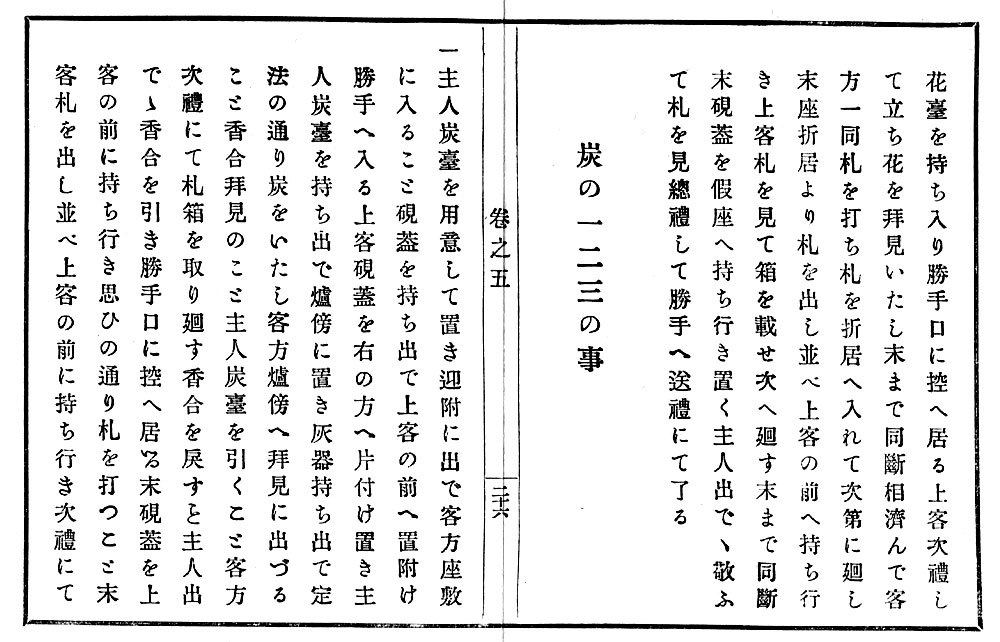 花臺を持ち入り勝手口に控へ居る上客次禮し
て立ち花を拜見いたし末まで同斷相濟んで客
方一同札を打ち札を折居へ入れて次第に廻し
末座折居より札を出し並べ上客の前へ持ち行
き上客札を見て箱を載せ次へ廻す末まで同斷
末硯蓋を假座へ持ち行き置く主人出でゝ敬ふ
て札を見總禮して勝手へ送禮にて了る
炭の一二三の事
卷之五
三十六
一主人炭臺を用意して置き迎附に出で客方座敷
に入ること硯蓋を持ち出で上客の前へ置附け
勝手へ入る上客硯蓋を右の方へ片付け置き主
人炭臺を持ち出で爐傍に置き灰器持ち出で定
法の通り炭をいたし客方爐傍へ拜見に出づる
こと香合拜見のこと主人炭臺を引くこと客方
次禮にて札箱を取り廻す香合を戾すと主人出
でゝ香合を引き勝手口に控へ居る末硯蓋を上
客の前に持ち行き思ひの通り札を打つこと末
客札を出し並べ上客の前に持ち行き次禮にて